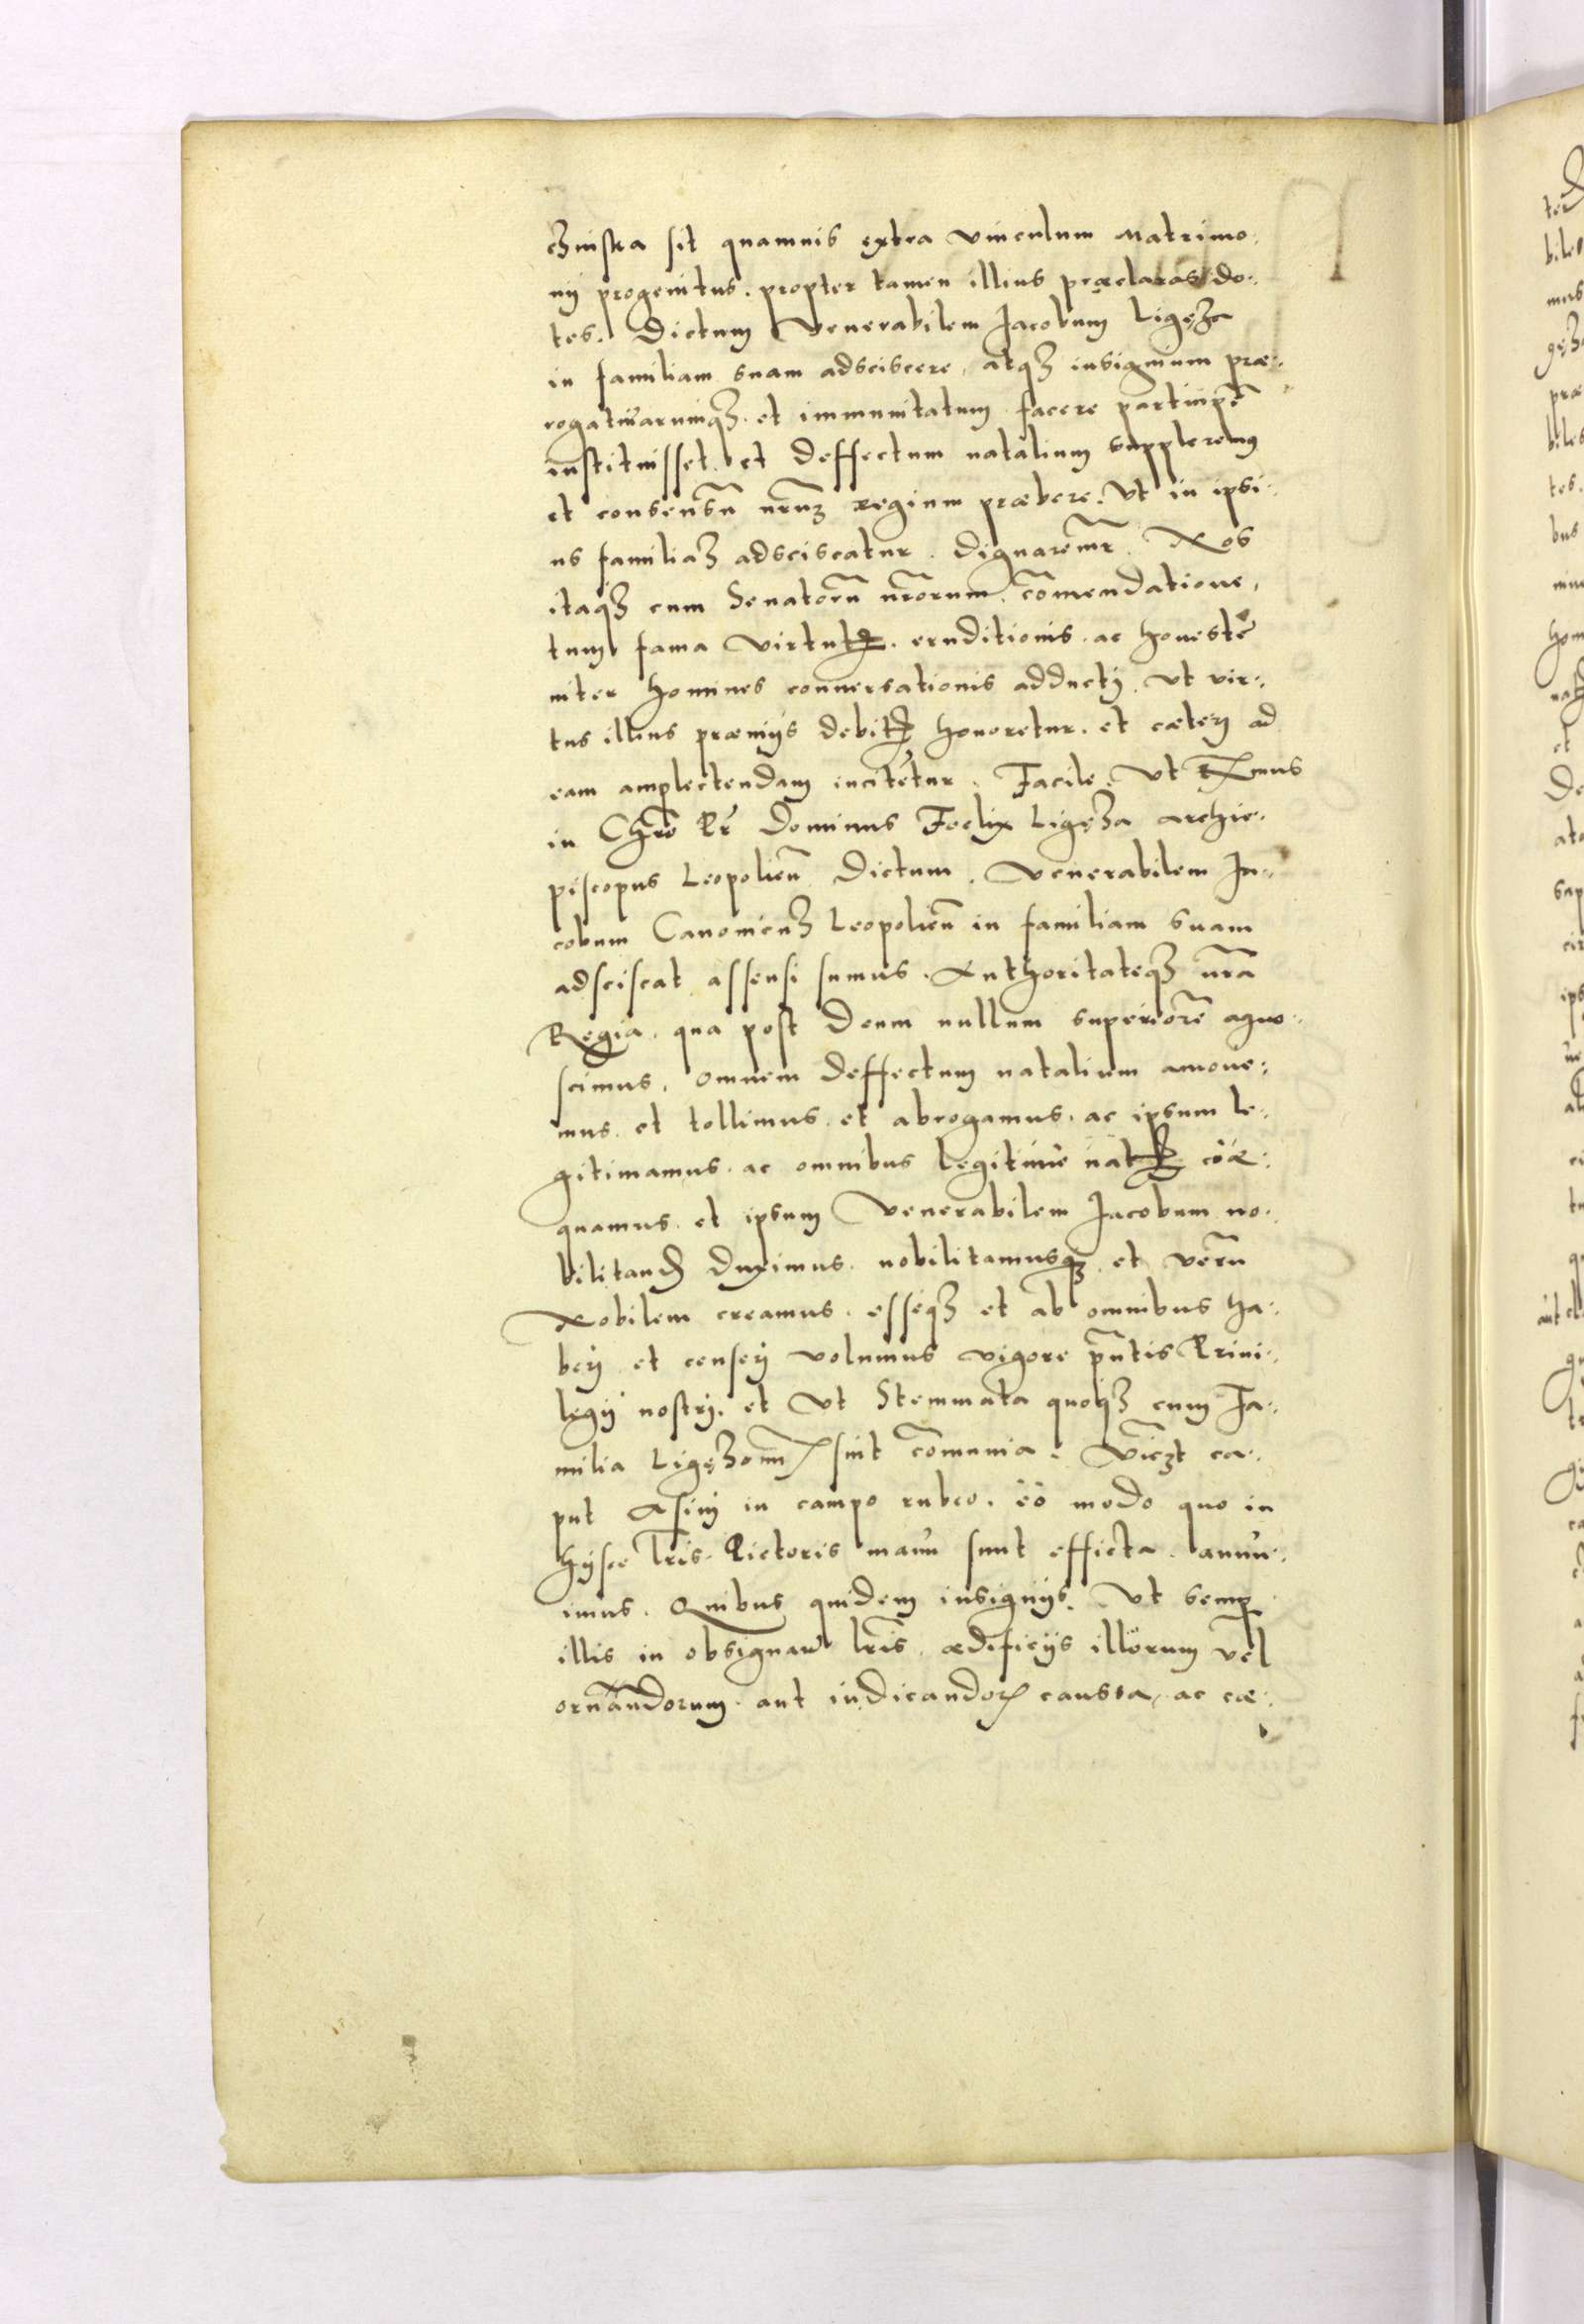 sit quamuis extra vinculum Matrimo-
nij progenitus. propter tamen illius præclaras do-
tes. Dictum Venerabilem Jacobum Ligęza
in familiam suam adsciscere, atq3 insignium præ-
rogatiuarumq3. et immunitatum facere participẽ
instituisset. et deffectum natalium suppleremus
et consensũ nr̃um regium præbere. Vt in ipsi-
us familiã adsciscatur. dignaremr̃. Nos
itaq3 cum Senatorũ nr̃orum. cõmendatione,
tum fama virtutis. eruditionis. ac honestẽ
niter homines conuersationis adducti. Vt vir-
tus illius præmijs debitis honoretur. et cæteri ad
eam amplectendam incitẽtur. Facile. Vt Rx̃mus
in Chr̃o Pr̃ Dominus Foelix Ligęza archie-
piscopus Leopolieñ dictum. Venerabilem Ja-
cobum Canonicu3 Leopolieñ in familiam suam
adsciscat assensi sumus. Authoritateq3 nr̃a
Regia. qua post Deum nullum superiorẽ agno-
scimus. omnem deffectum natalium amoue-
mus. et tollimus. et abrogamus. ac ipsum le-
gitimamus. ac omnibus legitime natis coæ-
quamus. et ipsum Venerabilem Jacobum no-
bilitand duximus. nobilitamusq3. et verũ
Nobilem creamus. esseq3 et ab omnibus ha-
beri et censeri volumus vigore pñtis Priui-
legij nostri. et Vt Stemmata quoq3 cum Fa-
milia Ligęzorum sint cõmunia. Vicz̃t ca-
put Asini in campo rubeo. eo modo quo in
hijsce lr̃is Pictoris manu sunt efficta. annu-
imus. Quibus quidem insignijs. Vt semp
illis in obsignan lr̃is. ædificijs illorum vel
ornandorum. aut indicandor causa, ac cæ-